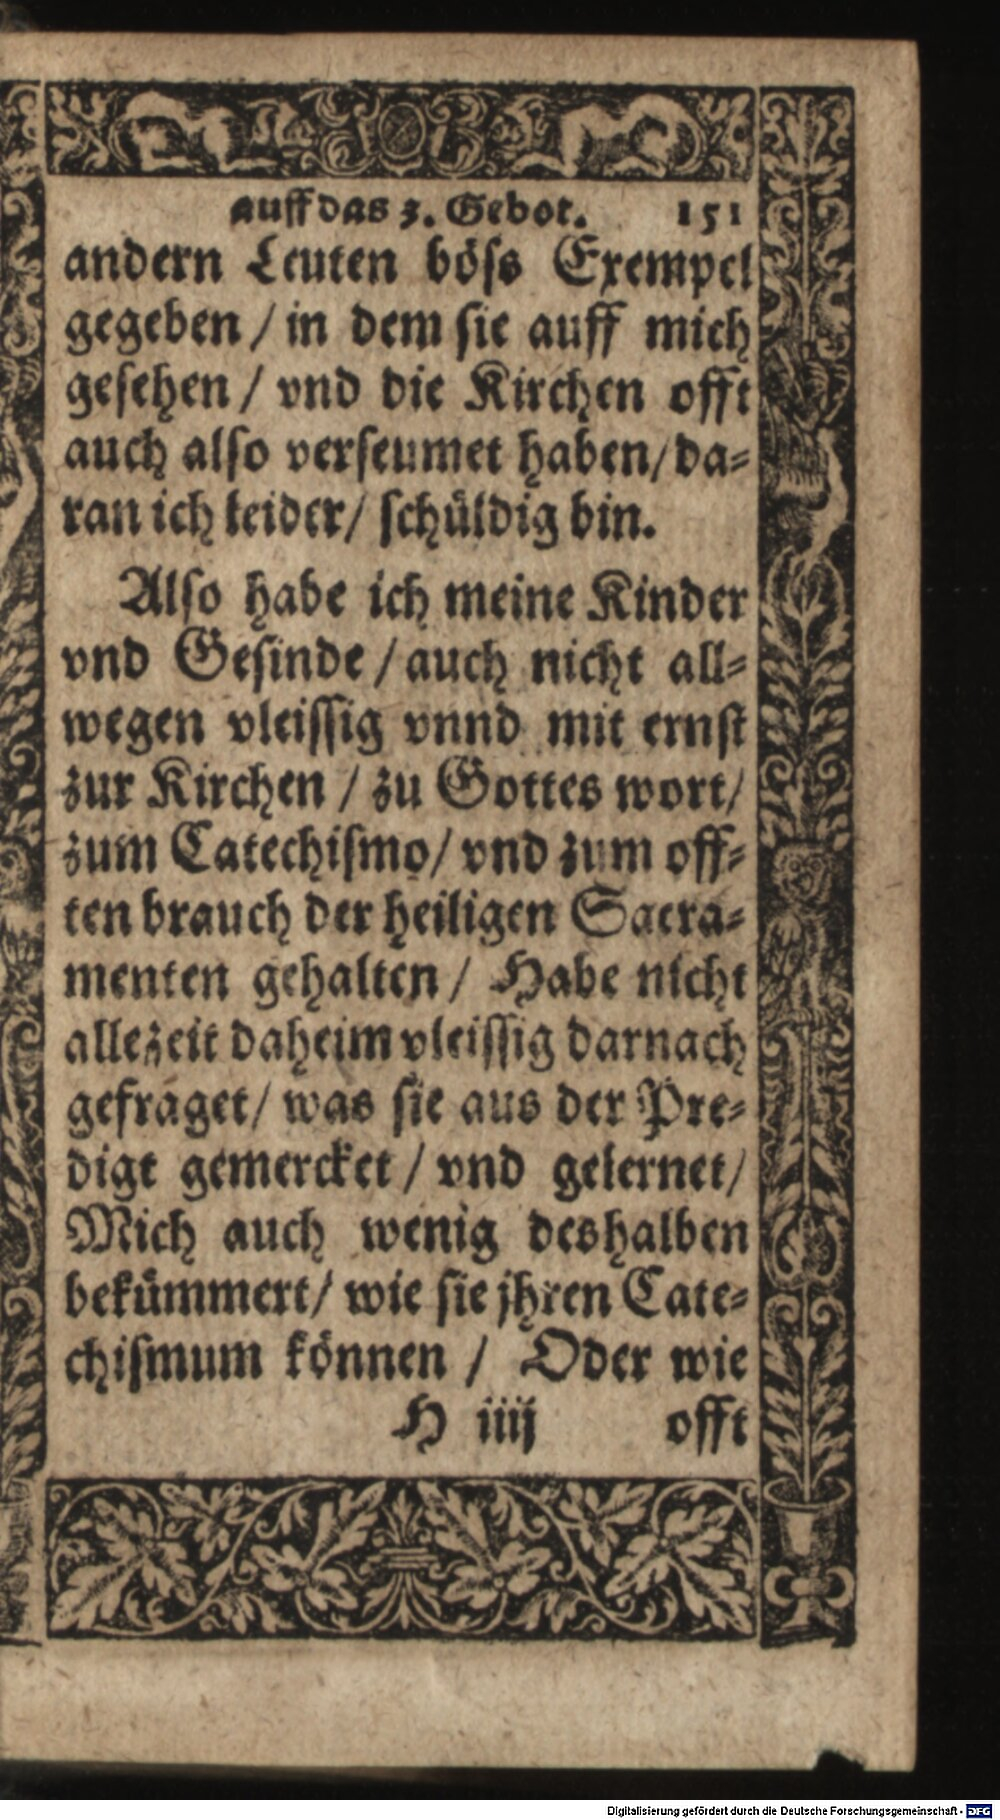 auff das 3. Gebot. 151
andern Leuten böss Exempel
gegeben / in dem sie auff mich
gesehen / vnd die Kirchen offt
auch also verseumet haben / da-
ran ich leider / schüldig bin.
Also habe ich meine Kinder
vnd Gesinde / auch nicht all-
wegen vleissig vnnd mit ernst
zur Kirchen / zu Gottes wort /
zum Catechismo / vnd zum off-
ten brauch der heiligen Sacra-
menten gehalten / Habe nicht
allezeit daheim vleissig darnach
gefraget / was sie aus der Pre-
digt gemercket / vnd gelernet /
Mich auch wenig deshalben
bekümmert / wie sie jhren Cate-
chismum können / Oder wie
H iiij offt
Digitalisierung gefördert durch die Deutsche Forschungsgemeinschaft - DFG